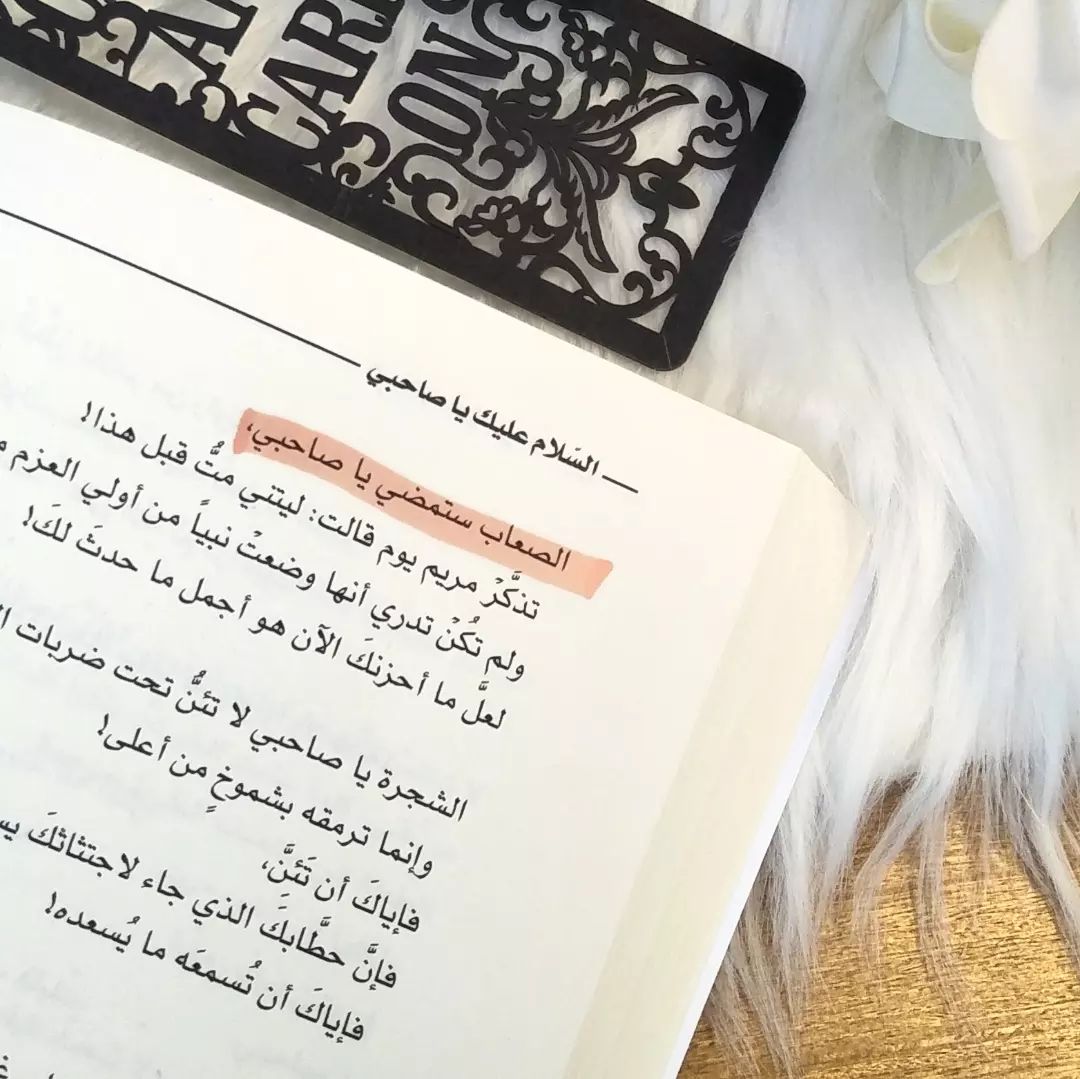 CAR
ON
السَلام عليك يا صاحبي
الصعاب ستمضي يا صاحبي،
تذكَّرْ مريم يوم قالت: ليتني متُّ قبل هذا!
ولم تكُنْ تدري أنها وضعتْ نبياً من أولي العزم
لعلَّ ما أحزنكَ الآن هو أجمل ما حدثَ لكَ!
الشجرة يا صاحبي لا تئنُّ تحت ضربات
وإنما ترمقه بشموخٍ من أعلى!
فإياكَ أن تَئنَّ،
فإنَّ حطَّابكَ الذي جاء لاجتثاثكَ
فإياكَ أن تُسمعَه ما يُسعده!